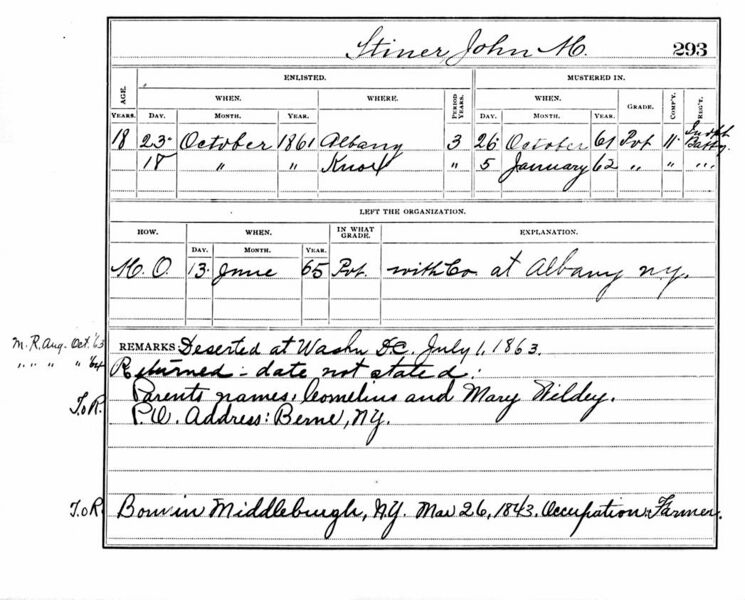 Stiner, John M. 293
ENLISTED. MUSTERED IN.
AGE. WHEN. WHERE. PERIOD YEARS. WHEN. GRADE. COMP'Y. REG'T.
YEARS. DAY. MONTH. YEAR. DAY. MONTH. YEAR.
18 23 October 1861 Albany 3 26 October 61 Pvt 11 Indpt Batty.
18 " " Knox " 5 January 62 " " "
LEFT THE ORGANIZATION.
HOW. WHEN. IN WHAT GRADE. EXPLANATION.
DAY. MONTH. YEAR.
M. O. 13 June 65 Pvt. with Co at Albany N.Y.
M.R. Aug. Oct. '63 REMARKS: Deserted at Washn D.C. July 1, 1863.
" " " " '64 Returned - date not stated.
T.o R. Parents names, Cornelius and Mary Wildey.
P.O. Address: Berne, N.Y.
T.o R. Born in Middleburgh, N.Y. Mar 26, 1843. Occupation: Farmer.